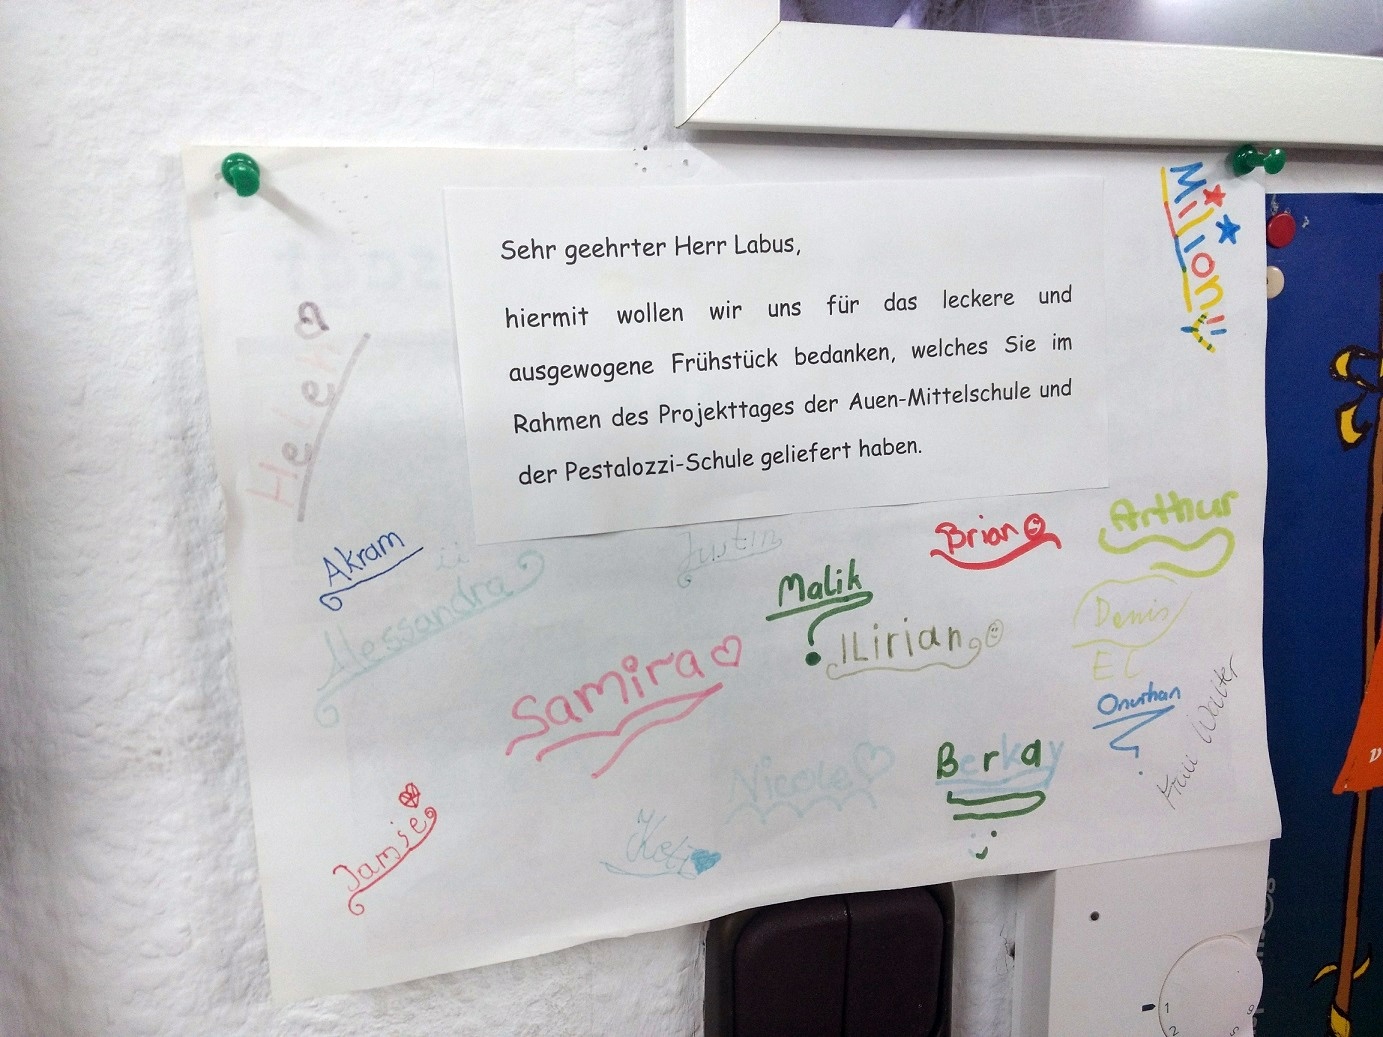 Sehr geehrter Herr Labus,
hiermit wollen wir uns für das leckere und
ausgewogene Frühstück bedanken, welches Sie im
Rahmen des Projekttages der Auen-Mittelschule und
der Pestalozzi-Schule geliefert haben.
Miljonij
Helena
Akram
Alessandra
Justin
Brian
Arthur
Malik
ILirian
Denis
EC
Samira
Onurhan
Frau Walter
Nicole
Berkay
Jamie
1
2